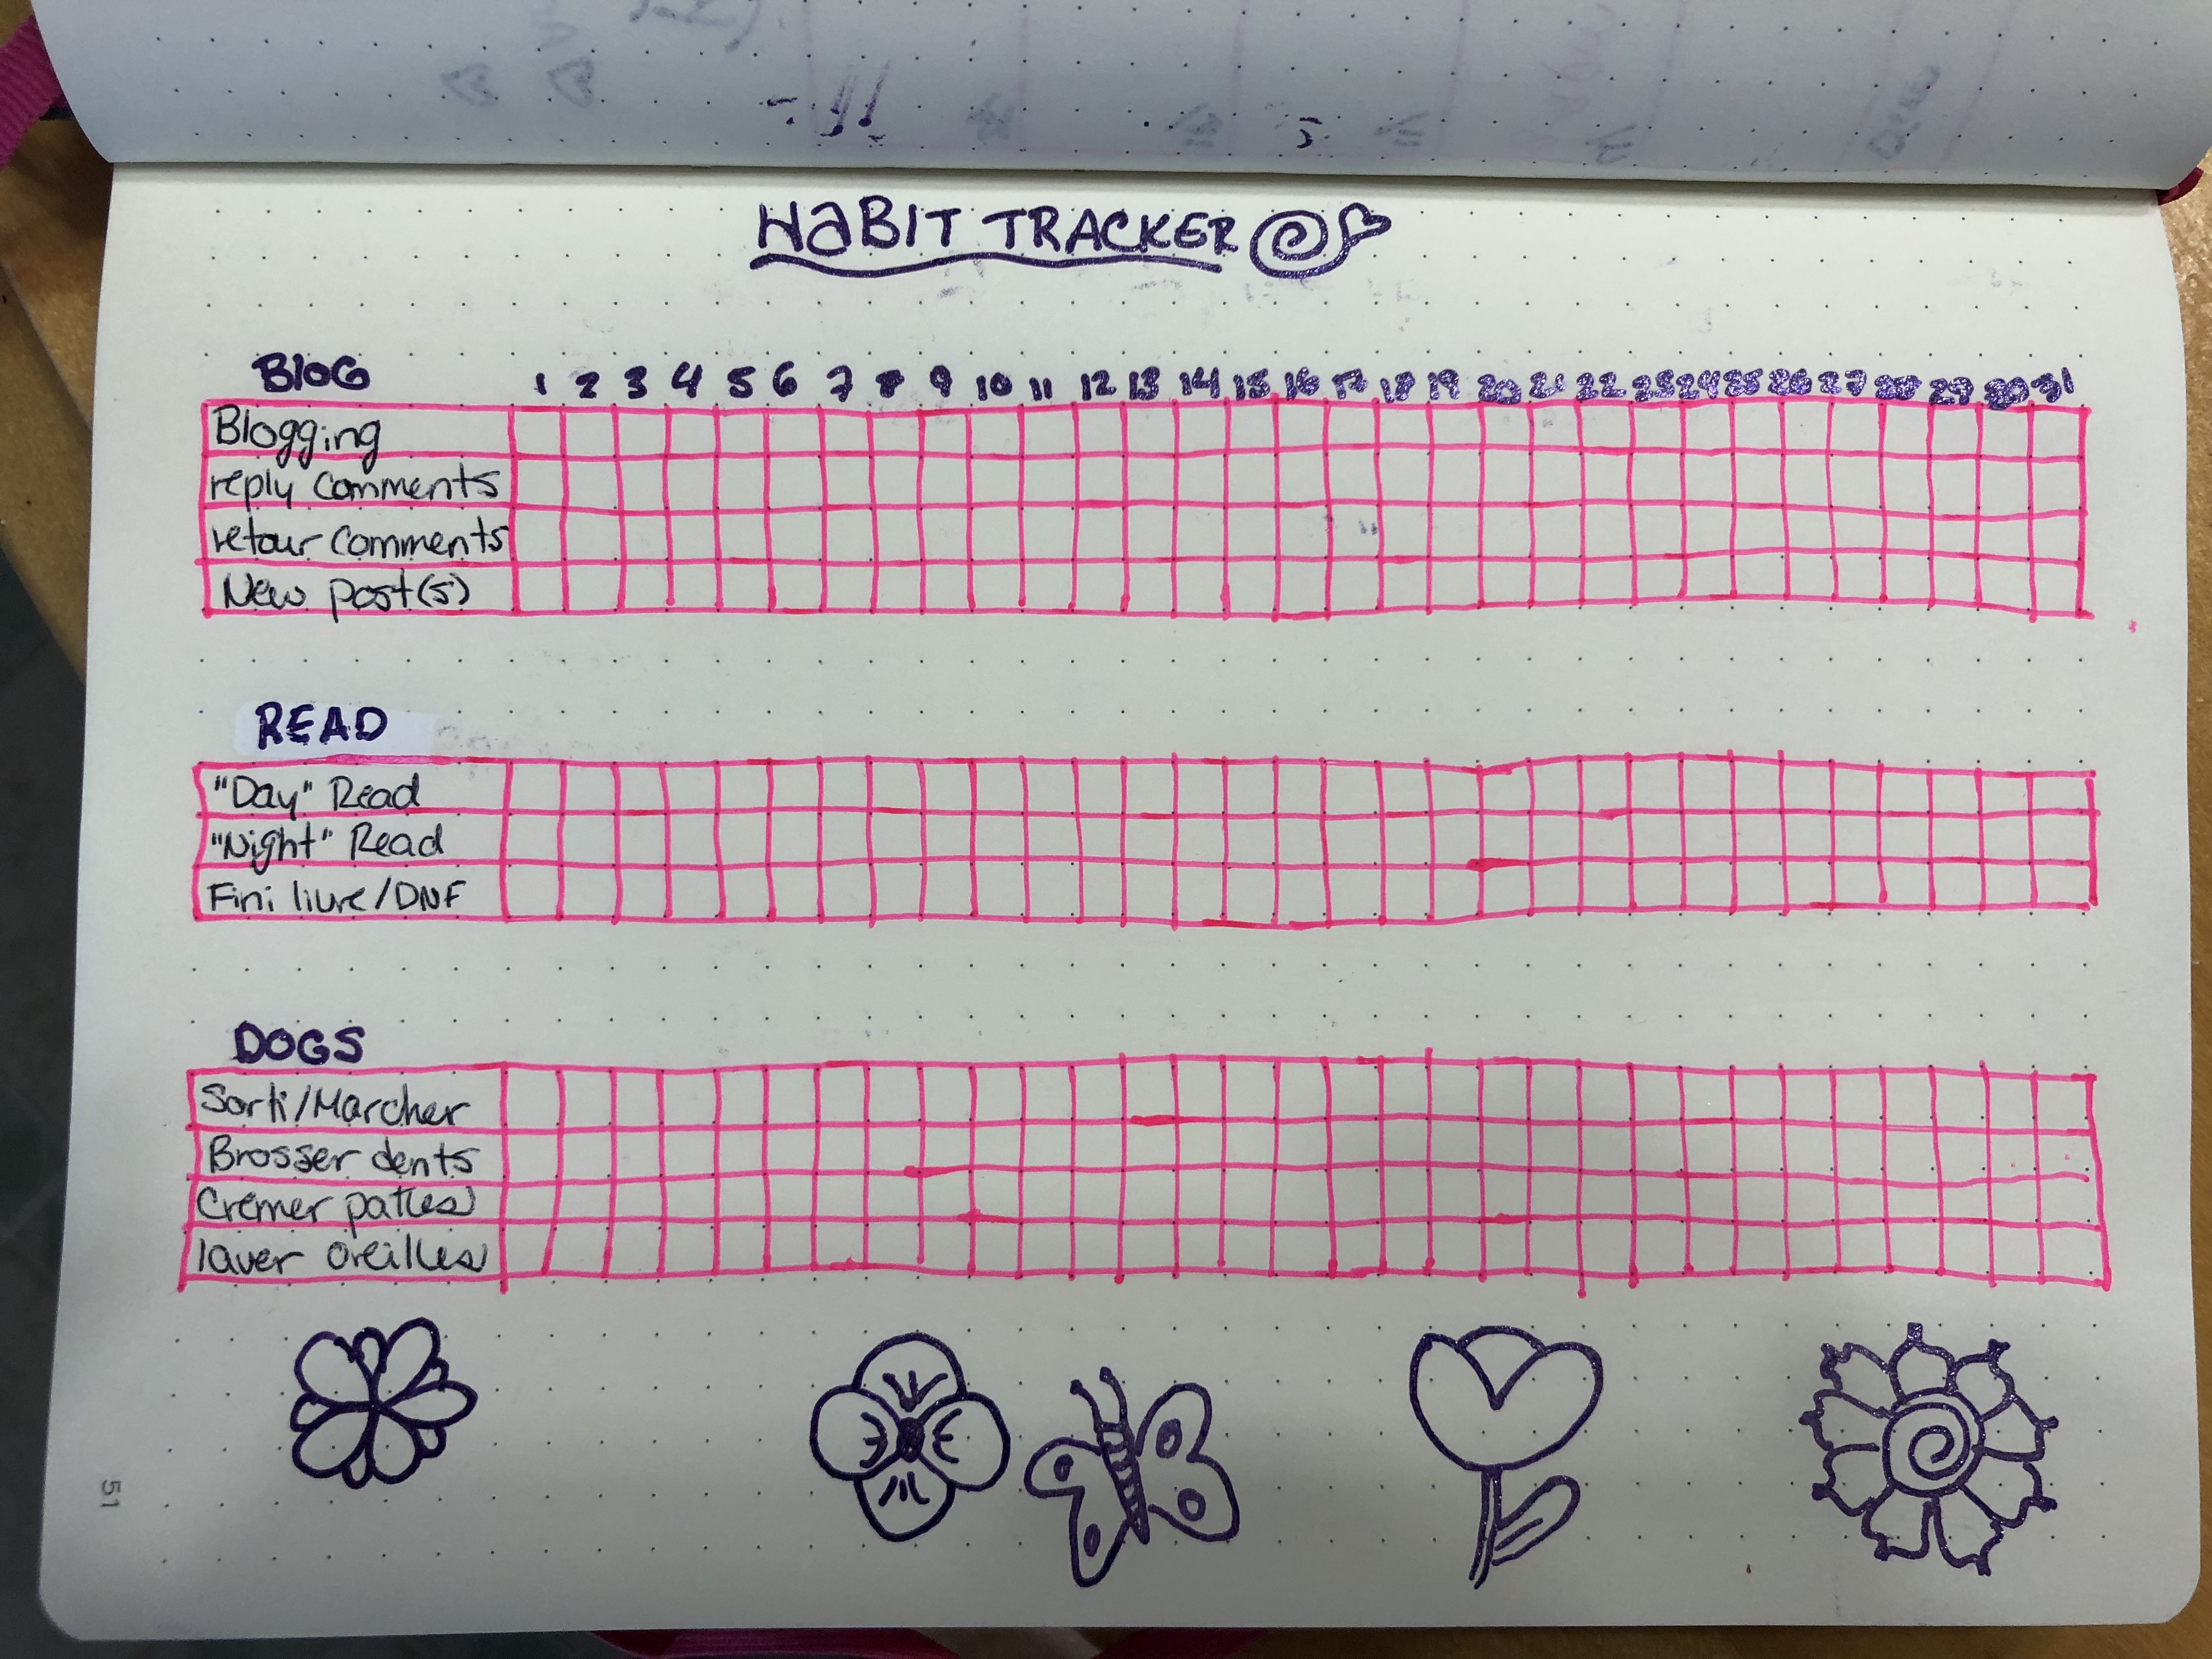 HaBIT TRACKER
BlOG 1 2 3 4 5 6 7 8 9 10 11 12 13 14 15 16 17 18 19 20 21 22 23 24 25 26 27 28 29 30 31
Blogging
reply comments
retour comments
New post(s)
READ
"Day" Read
"Night" Read
Fini livre/DNF
DOGS
Sorti/Marcher
Brosser dents
Cremer pattes
laver oreilles
51